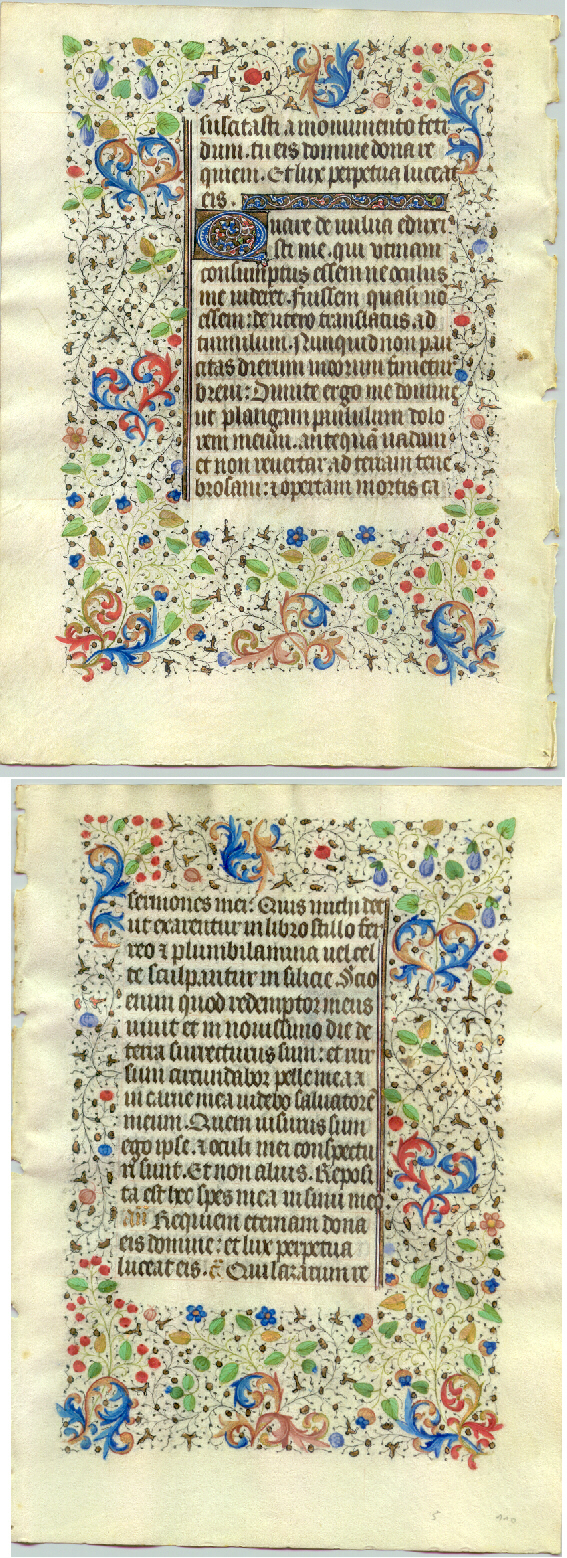 suscitasti a monumento feti
dum. tu eis domine dona re
quiem. Et lux perpetua luceat
eis.
Quare de vulva eduxi
sti me. qui utinam
consumptus essem ne oculus
me videret. Fuissem quasi nō
essem: de utero translatus. ad
tumulum. Nunquid non pau
citas dierum meorum finietur
brevi: Dimitte ergo me domine
ut plangam paululum dolo
rem meum. antequā vadam
et non revertar. ad terram tene
brosam: ⁊ opertam mortis ca
sermones mei: Quis michi det
ut exarentur in libro stillo fer
reo ⁊ plumbi lamina vel cel
te sculpantur in silicie. Scio
enim quod redemptor meus
vivit et in novissimo die de
terra surrecturus sum: et rur
sum circundabor pelle mea. ⁊
in carne mea videbo salvatorē
meum. Quem visurus sum
ego ipse. ⁊ oculi mei conspectu
ri sunt. Et non alius. Reposi
ta est hec spes mea in sinu meo
añ Requiem eternam dona
eis domine: et lux perpetua
luceat eis. Qui lazarum re
5